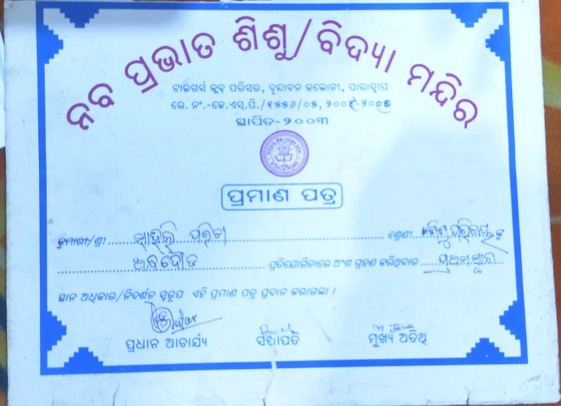 ନବ ପ୍ରଭାତ ଶିଶୁ/ବିଦ୍ୟା ମନ୍ଦିର
ଟାଇଗର୍ସ କ୍ଲବ ପରିସର, ବୃନ୍ଦାବନ କଲୋନୀ, ପାରାଦ୍ୱୀପ
ରେ. ନଂ.-କେ.ଏସ୍.ପି./୧୫୫୬/୦୫, ୨୦୦୫-୨୦୦୬
ସ୍ଥାପିତ-୨୦୦୩
ପ୍ରମାଣ ପତ୍ର
କୁମାରୀ/ଶ୍ରୀ ପରିଡ଼ା ଶ୍ରେଣୀ
ପ୍ରତିଯୋଗିତାରେ ଅଂଶ ଗ୍ରହଣ କରିଥିବାରୁ ପ୍ରଥମ ସ୍ଥାନ
ସ୍ଥାନ ଅଧିକାର/ନିଦର୍ଶନ ସ୍ୱରୂପ ଏହି ପ୍ରମାଣ ପତ୍ର ପ୍ରଦାନ କରାଗଲା ।
ପ୍ରଧାନ ଆଚାର୍ଯ୍ୟ ସଭାପତି ମୁଖ୍ୟ ଅତିଥି